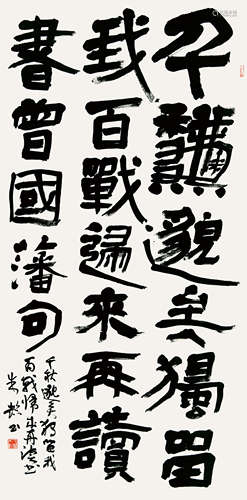 千龝邈矣獨留
我百戰歸來再讀
書曾國藩句
千秋邈矣獨留我
百戰歸來再讀書